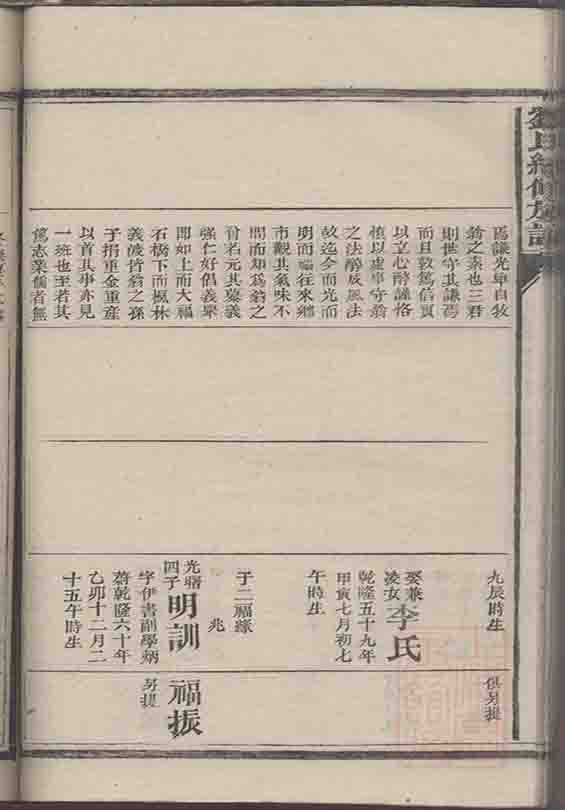 劉氏續修族譜
焉謙光卑自牧
翁之素也三君
則世守其謙焉
而且敦篤信實
以立心醇謹恪
慎以處事守翁
之法醇成風法
故迄今而光而
明而福往來鄉
市觀其氣味不
問而知為翁之
裔若元其慕義
強仁好倡義舉
即如上而大福
石橋下而楓林
義渡皆翁之孫
子捐重金重產
以首其事亦見
一班也至若其
篤志業儒者無
九辰時生
娶兼
凌女李氏
乾隆五十九年
甲寅七月初七
午時生
子二福緣
兆
光曙
四子明訓
字伊書副學炳
蔚乾隆六十年
乙卯十二月二
十五午時生
俱另提
福振
另提